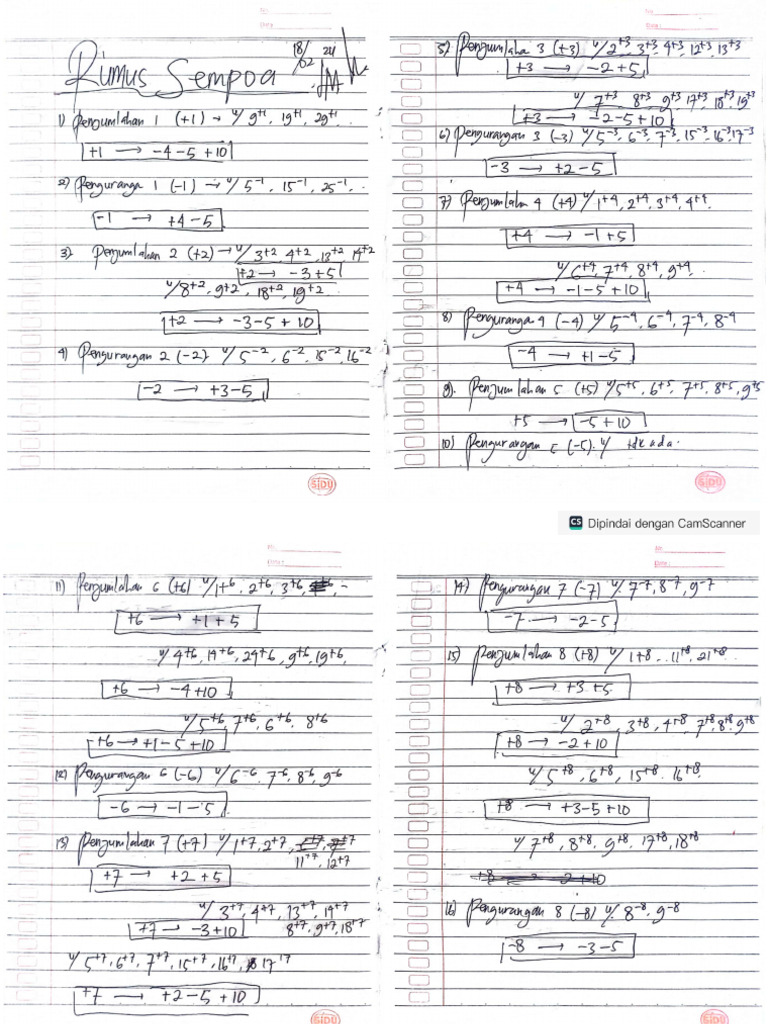 No:
Date:
Rumus Sempoa 18/02 24
1) Penjumlahan 1 (+1) → u/ 9+1, 19+1, 29+1..
+1 → -4 -5 + 10
2) Penguranga 1 (-1) → u/ 5-1, 15-1, 25-1, ..
-1 → +4 -5
3) Penjumlahan 2 (+2) → u/ 3+2, 4+2, 13+2, 14+2
+2 → -3 +5
u/ 8+2, 9+2, 18+2, 19+2
+2 → -3 -5 + 10
4) Pengurangan 2 (-2) u/ 5-2, 6-2, 15-2, 16-2
-2 → +3 -5
SIDU
No:
Date:
5) Penjumlaha 3 (+3) u/ 2+3, 3+3, 4+3, 12+3, 13+3
+3 → -2 +5
u/ 7+3 8+3, 9+3, 17+3, 18+3, 19+3
+3 → -2 -5 + 10
6) Pengurangan 3 (-3) u/ 5-3, 6-3, 7-3, 15-3, 16-3, 17-3
-3 → +2 -5
7) Penjumlahn 4 (+4) u/ 1+4, 2+4, 3+4, 4+4.
+4 → -1 +5
u/ 6+4, 7+4, 8+4, 9+4..
+4 → -1 -5 + 10
8) Penguranga 4 (-4) u/ 5-4, 6-4, 7-4, 8-4
-4 → +1 -5
9). Penjumlahan 5 (+5) u/ 5+5, 6+5, 7+5, 8+5, 9+5
+5 → -5 + 10
10) Pengurangan 5 (-5). u/ tdk ada.
SIDU
CS Dipindai dengan CamScanner
No:
Date:
11) Penjumlahan 6 (+6) u/ 1+6, 2+6, 3+6, -
+6 → +1 + 5
u/ 4+6, 14+6, 24+6, 9+6, 19+6,
+6 → -4 + 10
u/ 5+6, 7+6, 6+6, 8+6
+6 → +1 -5 + 10
12) Pengurangan 6 (-6) u/ 6-6, 7-6, 8-6, 9-6
-6 → -1 -5
13) Penjumlahan 7 (+7) u/ 1+7, 2+7,
11+7, 12+7
+7 → +2 +5
u/ 3+7, 4+7, 13+7, 14+7
+7 → -3 + 10 8+7, 9+7, 18+7
u/ 5+7, 6+7, 7+7, 15+7, 16+7, 17 17
+7 → +2 -5 + 10
SIDU
No:
Date:
14) Pengurangan 7 (-7) u/. 7-7, 8-7, 9-7
-7 → -2 -5
15) Penjumlahan 8 (+8) u/ 1+8, .. 11+8, 21+8
+8 → +3 +5
u/ 2+8, 3+8, 4+8, 7+8, 8+8, 9+8
+8 → -2 + 10
u/ 5+8, 6+8, 15+8, 16+8.
+8 → +3 -5 + 10
u/ 7+8, 8+8, 9+8, 17+8, 18+8
+8 → -2 +10
16) Pengurangan 8 (-8) u/. 8-8, 9-8
-8 → -3 -5
SIDU